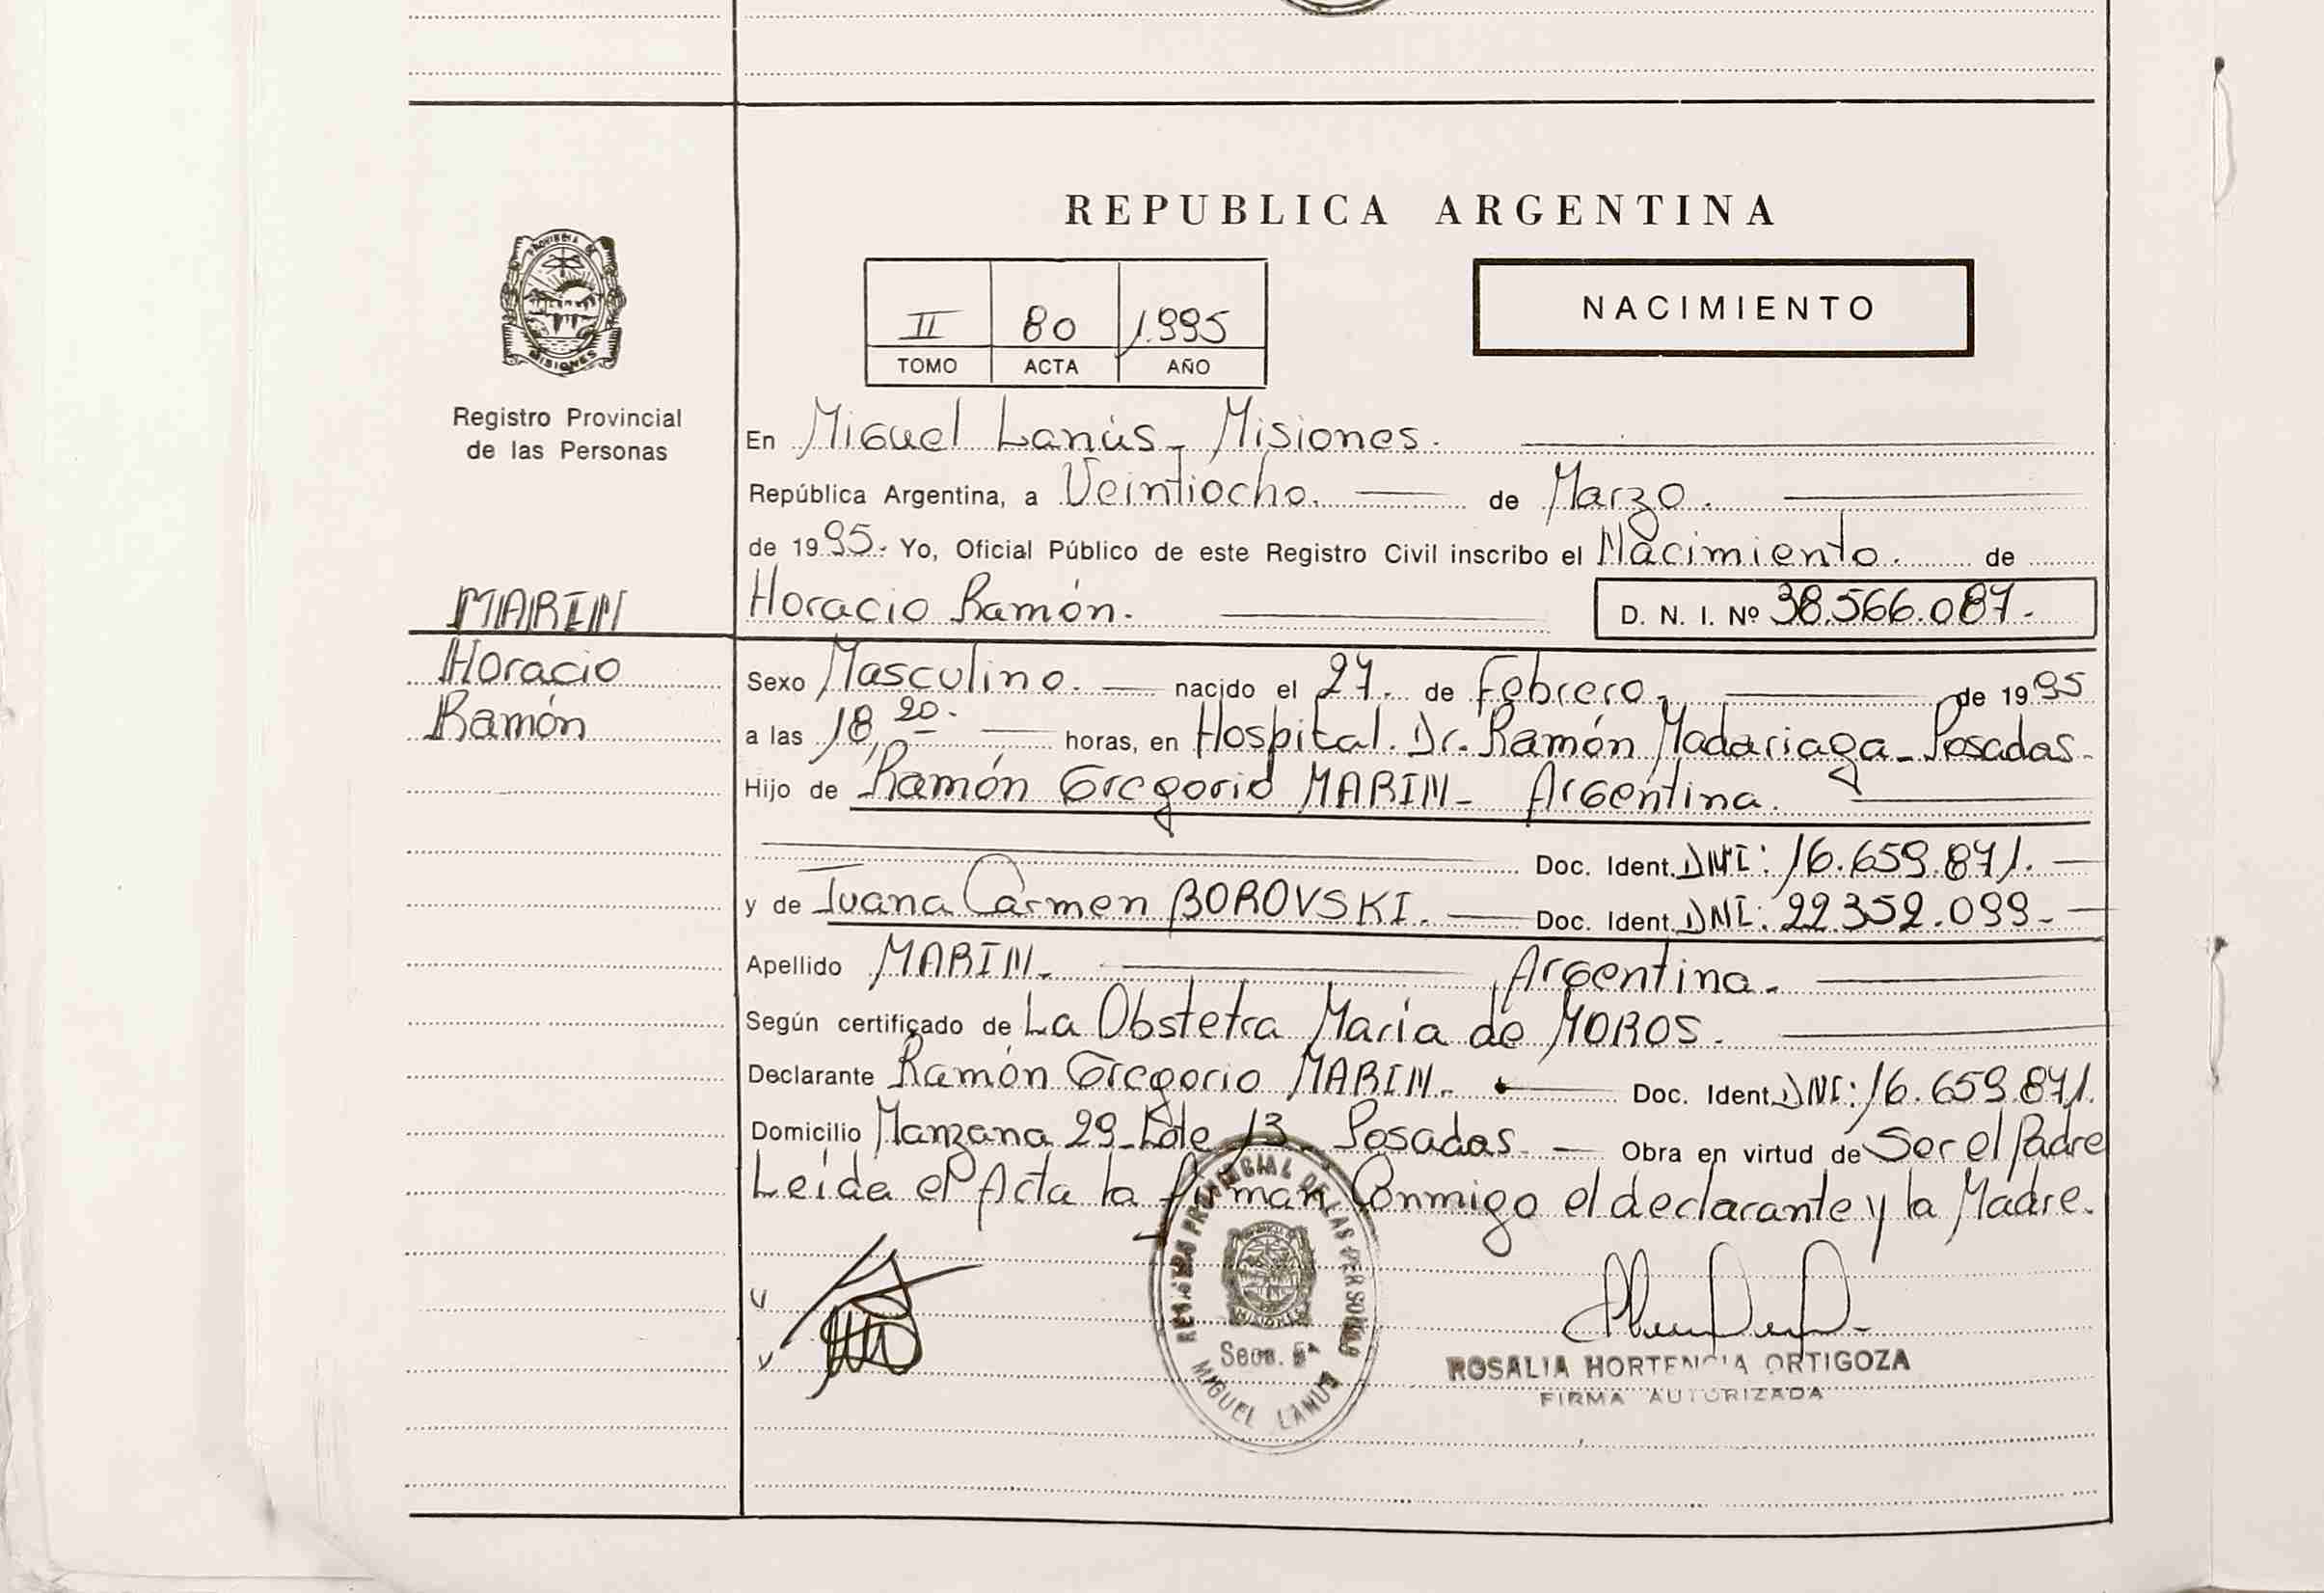 REPUBLICA ARGENTINA
NACIMIENTO
II 80 1.995
TOMO ACTA AÑO
PROVINCIA DE
MISIONES
Registro Provincial
de las Personas
MARIN
Horacio
Ramón
En Miguel Lanús - Misiones.
República Argentina, a Veintiocho. de Marzo.
de 1995. Yo, Oficial Público de este Registro Civil inscribo el Nacimiento. de
Horacio Ramón. D. N. I. Nº 38.566.087.-
Sexo Masculino. nacido el 27. de Febrero. de 1995
a las 18,20. horas, en Hospital. Dr. Ramón Madariaga - Posadas.
Hijo de Ramón Gregorio MARIN - Argentina.
Doc. Ident. DNI: 16.659.871.
y de Juana Carmen BOROVSKI. Doc. Ident. DNI: 22.352.099.-
Apellido MARIN - Argentina.
Según certificado de La Obstetra María de MOROS.
Declarante Ramón Gregorio MARIN. Doc. Ident. DNI: 16.659.871.
Domicilio Manzana 29 - Lote 13 - Posadas. Obra en virtud de Ser el Padre
Leída el Acta la firman Conmigo el declarante y la Madre.
REGISTRO PROVINCIAL DE LAS PERSONAS
MISIONES
Secc. 5ª
MIGUEL LANUS
ROSALIA HORTENCIA ORTIGOZA
FIRMA AUTORIZADA